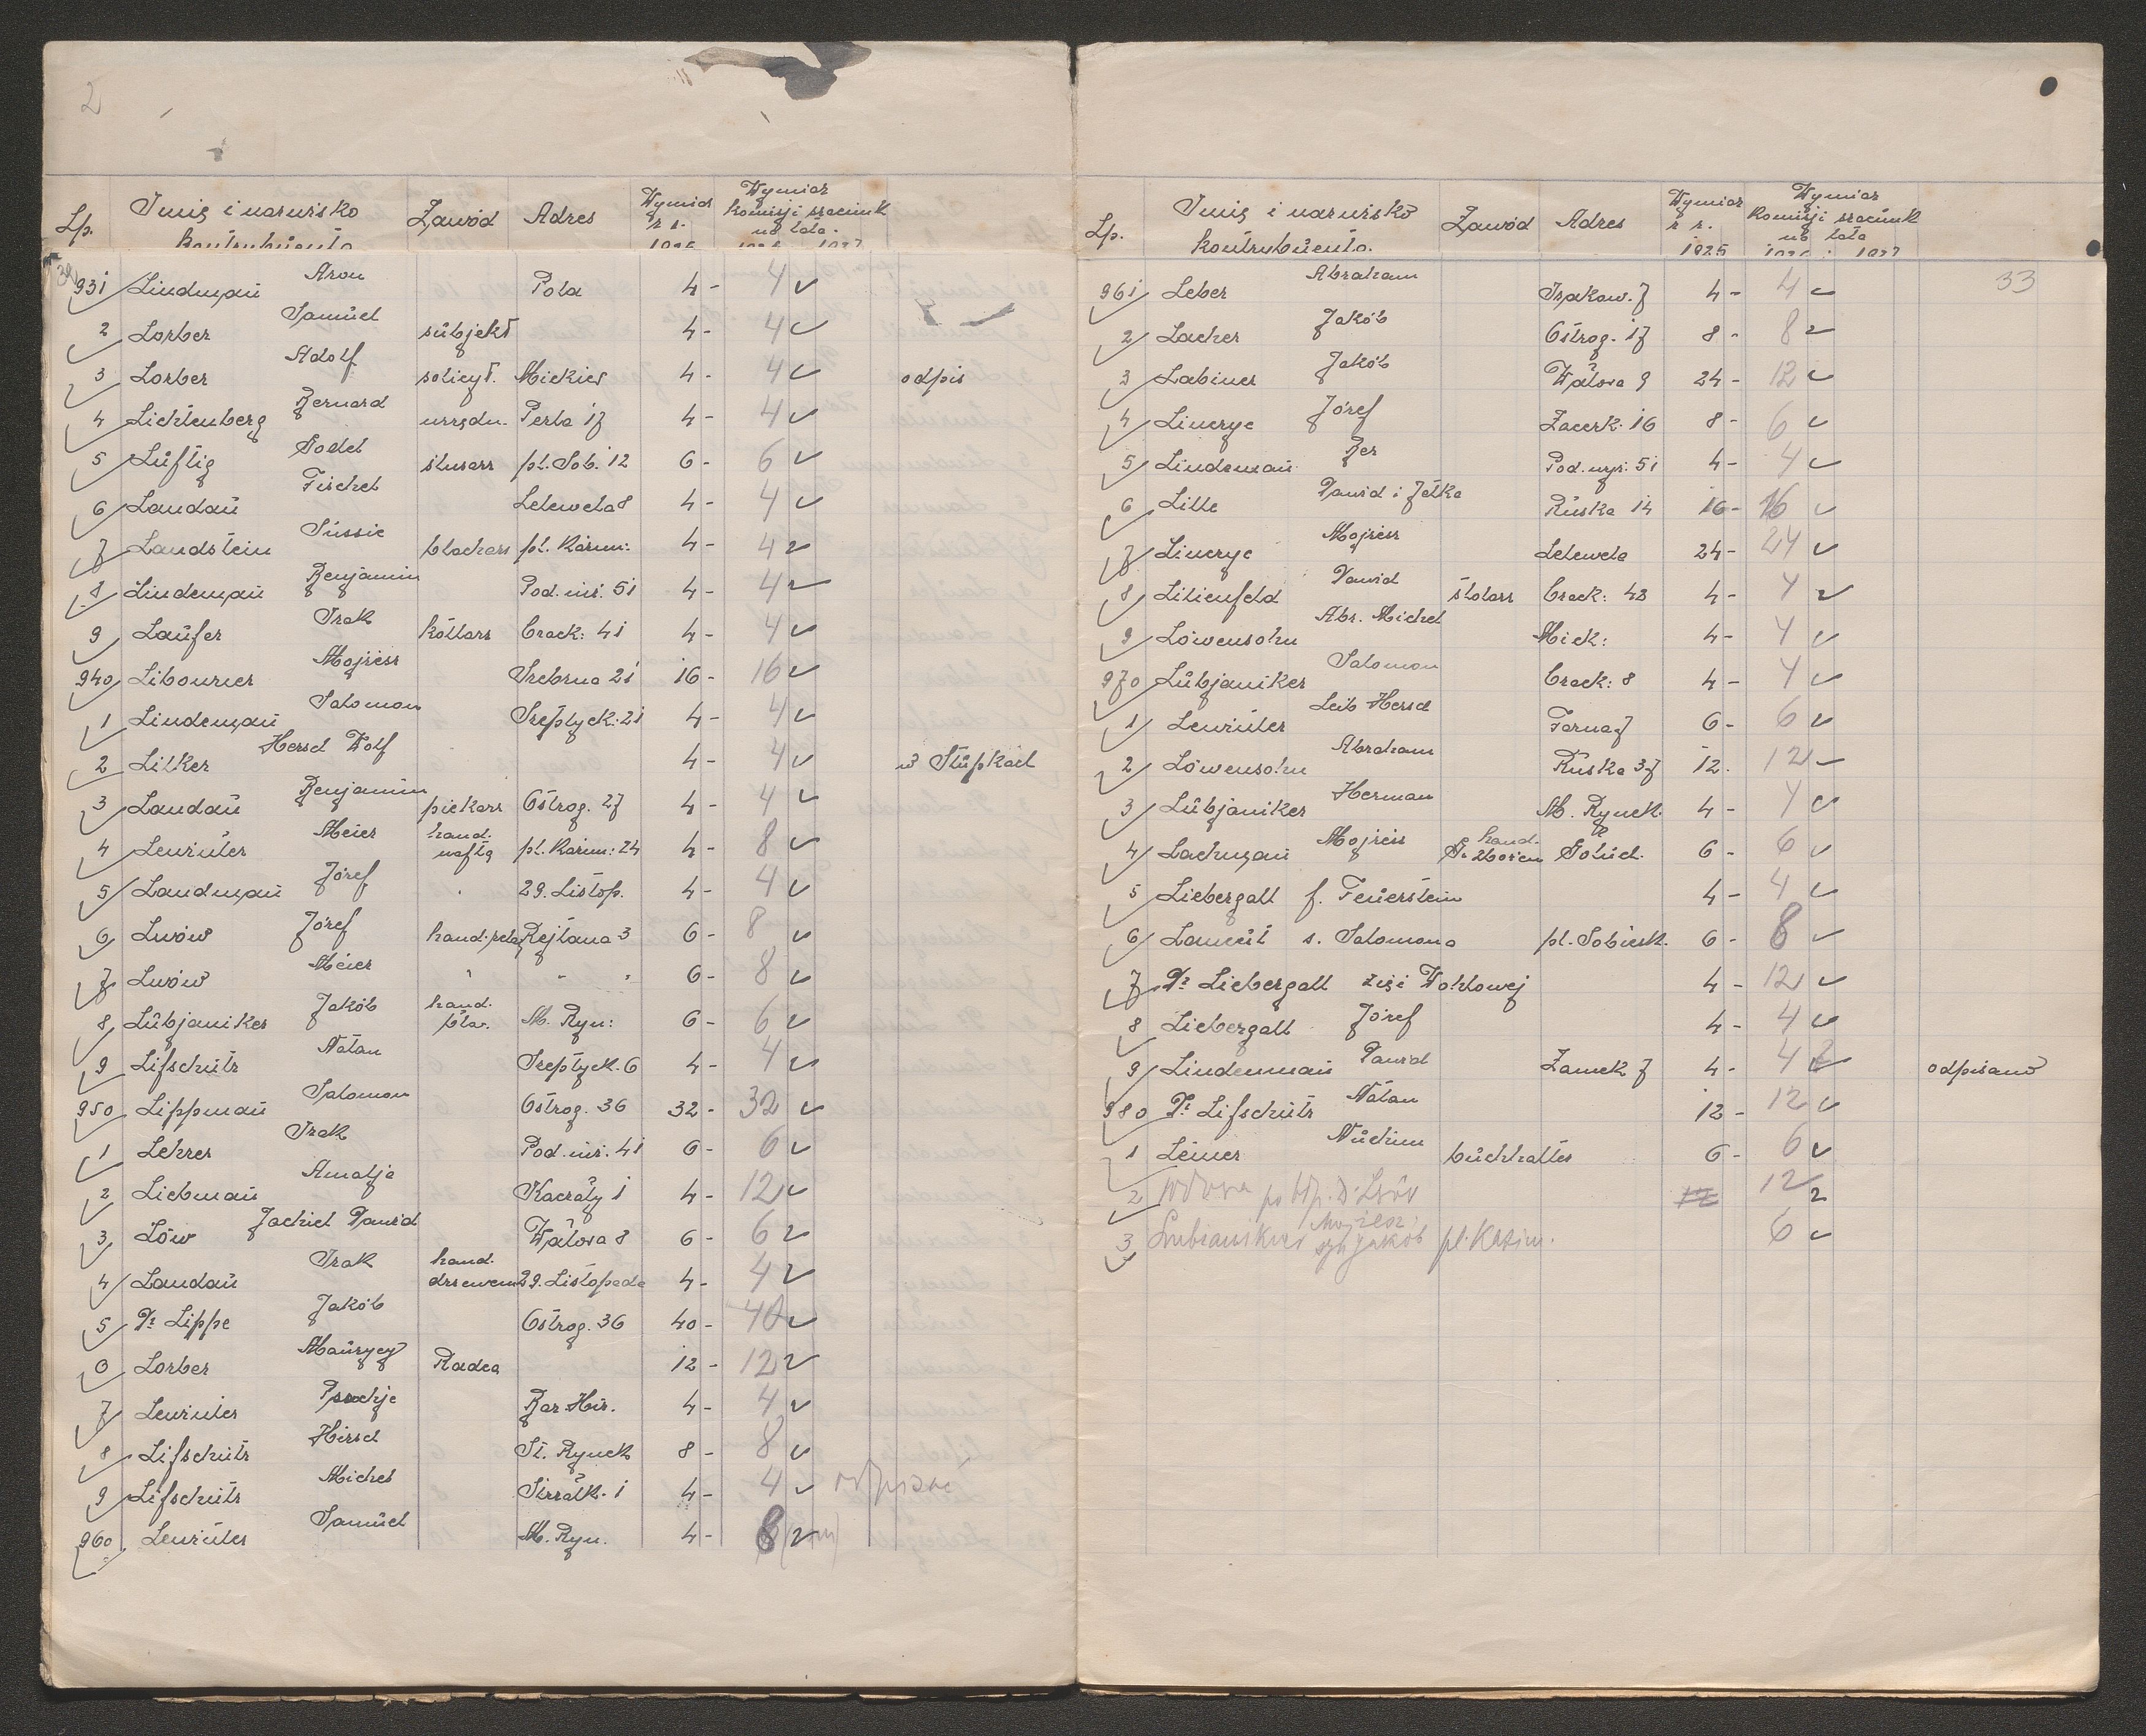 2
Lp. Imię i nazwisko kontrybuenta Zawód Adres Wymiar z r. 1925 Wymiar komisji szacunk na lata 1926 i 1927
931 Lindman Aron Pola 4- 4
2 Lorber Samuel subjekt 4- 4
3 Lorber Adolf solicyt. Mickiew 4- 4 odpis
4 Lichtenberg Bernard urzędn. Perla 17 4- 4
5 Luftig Godel ślusarz pl. Sob. 12 6- 6
6 Landau Fischel Lelewela 8 4- 4
7 Landstein Süssie blacharz pl. Kazim: 4- 4
8 Lindeman Benjamin Pod. niż. 51 4- 4
9 Laufer Izak kotlarz Crack: 41 4- 4
940 Libourner Mojżesz Srebrna 21 16- 16
1 Lindeman Salomon Szeptyck. 21 4- 4
2 Lilker Hersch Wolf 4- 4 w Stupkach
3 Landau Benjamin piekarz Ostrog. 27 4- 4
4 Lewinter Meier hand. naftą pl. Kazim: 24 4- 8
5 Landman Józef 29. Listop. 4- 4
6 Lwów Józef hand. Rejtana 3 6- 8
7 Lwów Meier " " " 6- 8
8 Lubjaniker Jakób hand. bław. M. Ryn: 6- 6
9 Lifschütz Natan Szeptyck. 6 4- 4
950 Lippman Salomon Ostrog. 36 32- 32
1 Lehrer Izak Pod. niż. 41 6- 6
2 Liebman Amalja Kaczały 1 4- 12
3 Löw Jachiel Dawid Wałowa 8 6- 6
4 Landau Izak hand. drzewem 29. Listopada 4- 4
5 Dr Lippe Jakób Ostrog. 36 40- 40
6 Lorber Maurycy Radca 12- 12
7 Lewinter Bar. Hir. 4- 4
8 Lifschütz Hirsch St. Rynek 8- 8
9 Lifschütz Michel Strzałk. 1 4- 4 odpisać
960 Lewinter Samuel M. Ryn. 4- 8
33
Lp. Imię i nazwisko kontrybuenta. Zawód Adres Wymiar z r. 1925 Wymiar Komisji szacunk na lata 1926 i 1927
961 Leber Abraham Izakow. 7 4- 4
2 Lacher Jakób Ostrog. 17 8- 8
3 Labiner Jakób Wałowa 9 24- 12
4 Linerye Józef Zacerk. 16 8- 6
5 Lindeman Ber Pod. wyż. 51 4- 4
6 Lille Dawid i Jetka Ruska 14 16- 16
7 Linerye Mojżesz Lelewela 24- 24
8 Lilienfeld Dawid stolarz Crack: 43 4- 4
9 Löwensohn Abr. Michel Mick: 4- 4
970 Lubjaniker Salomon Crack: 8 4- 4
1 Lewinter Leib Hersch Tarna 7 6- 6
2 Löwensohn Abraham Ruska 37 12. 12
3 Lubjaniker Herman M. Rynek. 4- 4
4 Lachman Mojżesz hand. zbożem Gołuch. 6- 6
5 Liebergall f. Feuerstein 4- 4
6 Lamcut s. Salomona pl. Sobiesk. 6- 8
7 Dr Liebergall zięć Wohlowej 4- 12
8 Liebergall Józef 4- 4
9 Lindenman Dawid Zamek 7 4- 4 odpisano
980 Dr Lifschütz Natan 12- 12
1 Leiner Nuchim buchhalter 6- 6
2 wdowa po błp. D. Lwów 12 12
3 Lubianiker Mojżesz syn Jakob pl. Kazim. 6